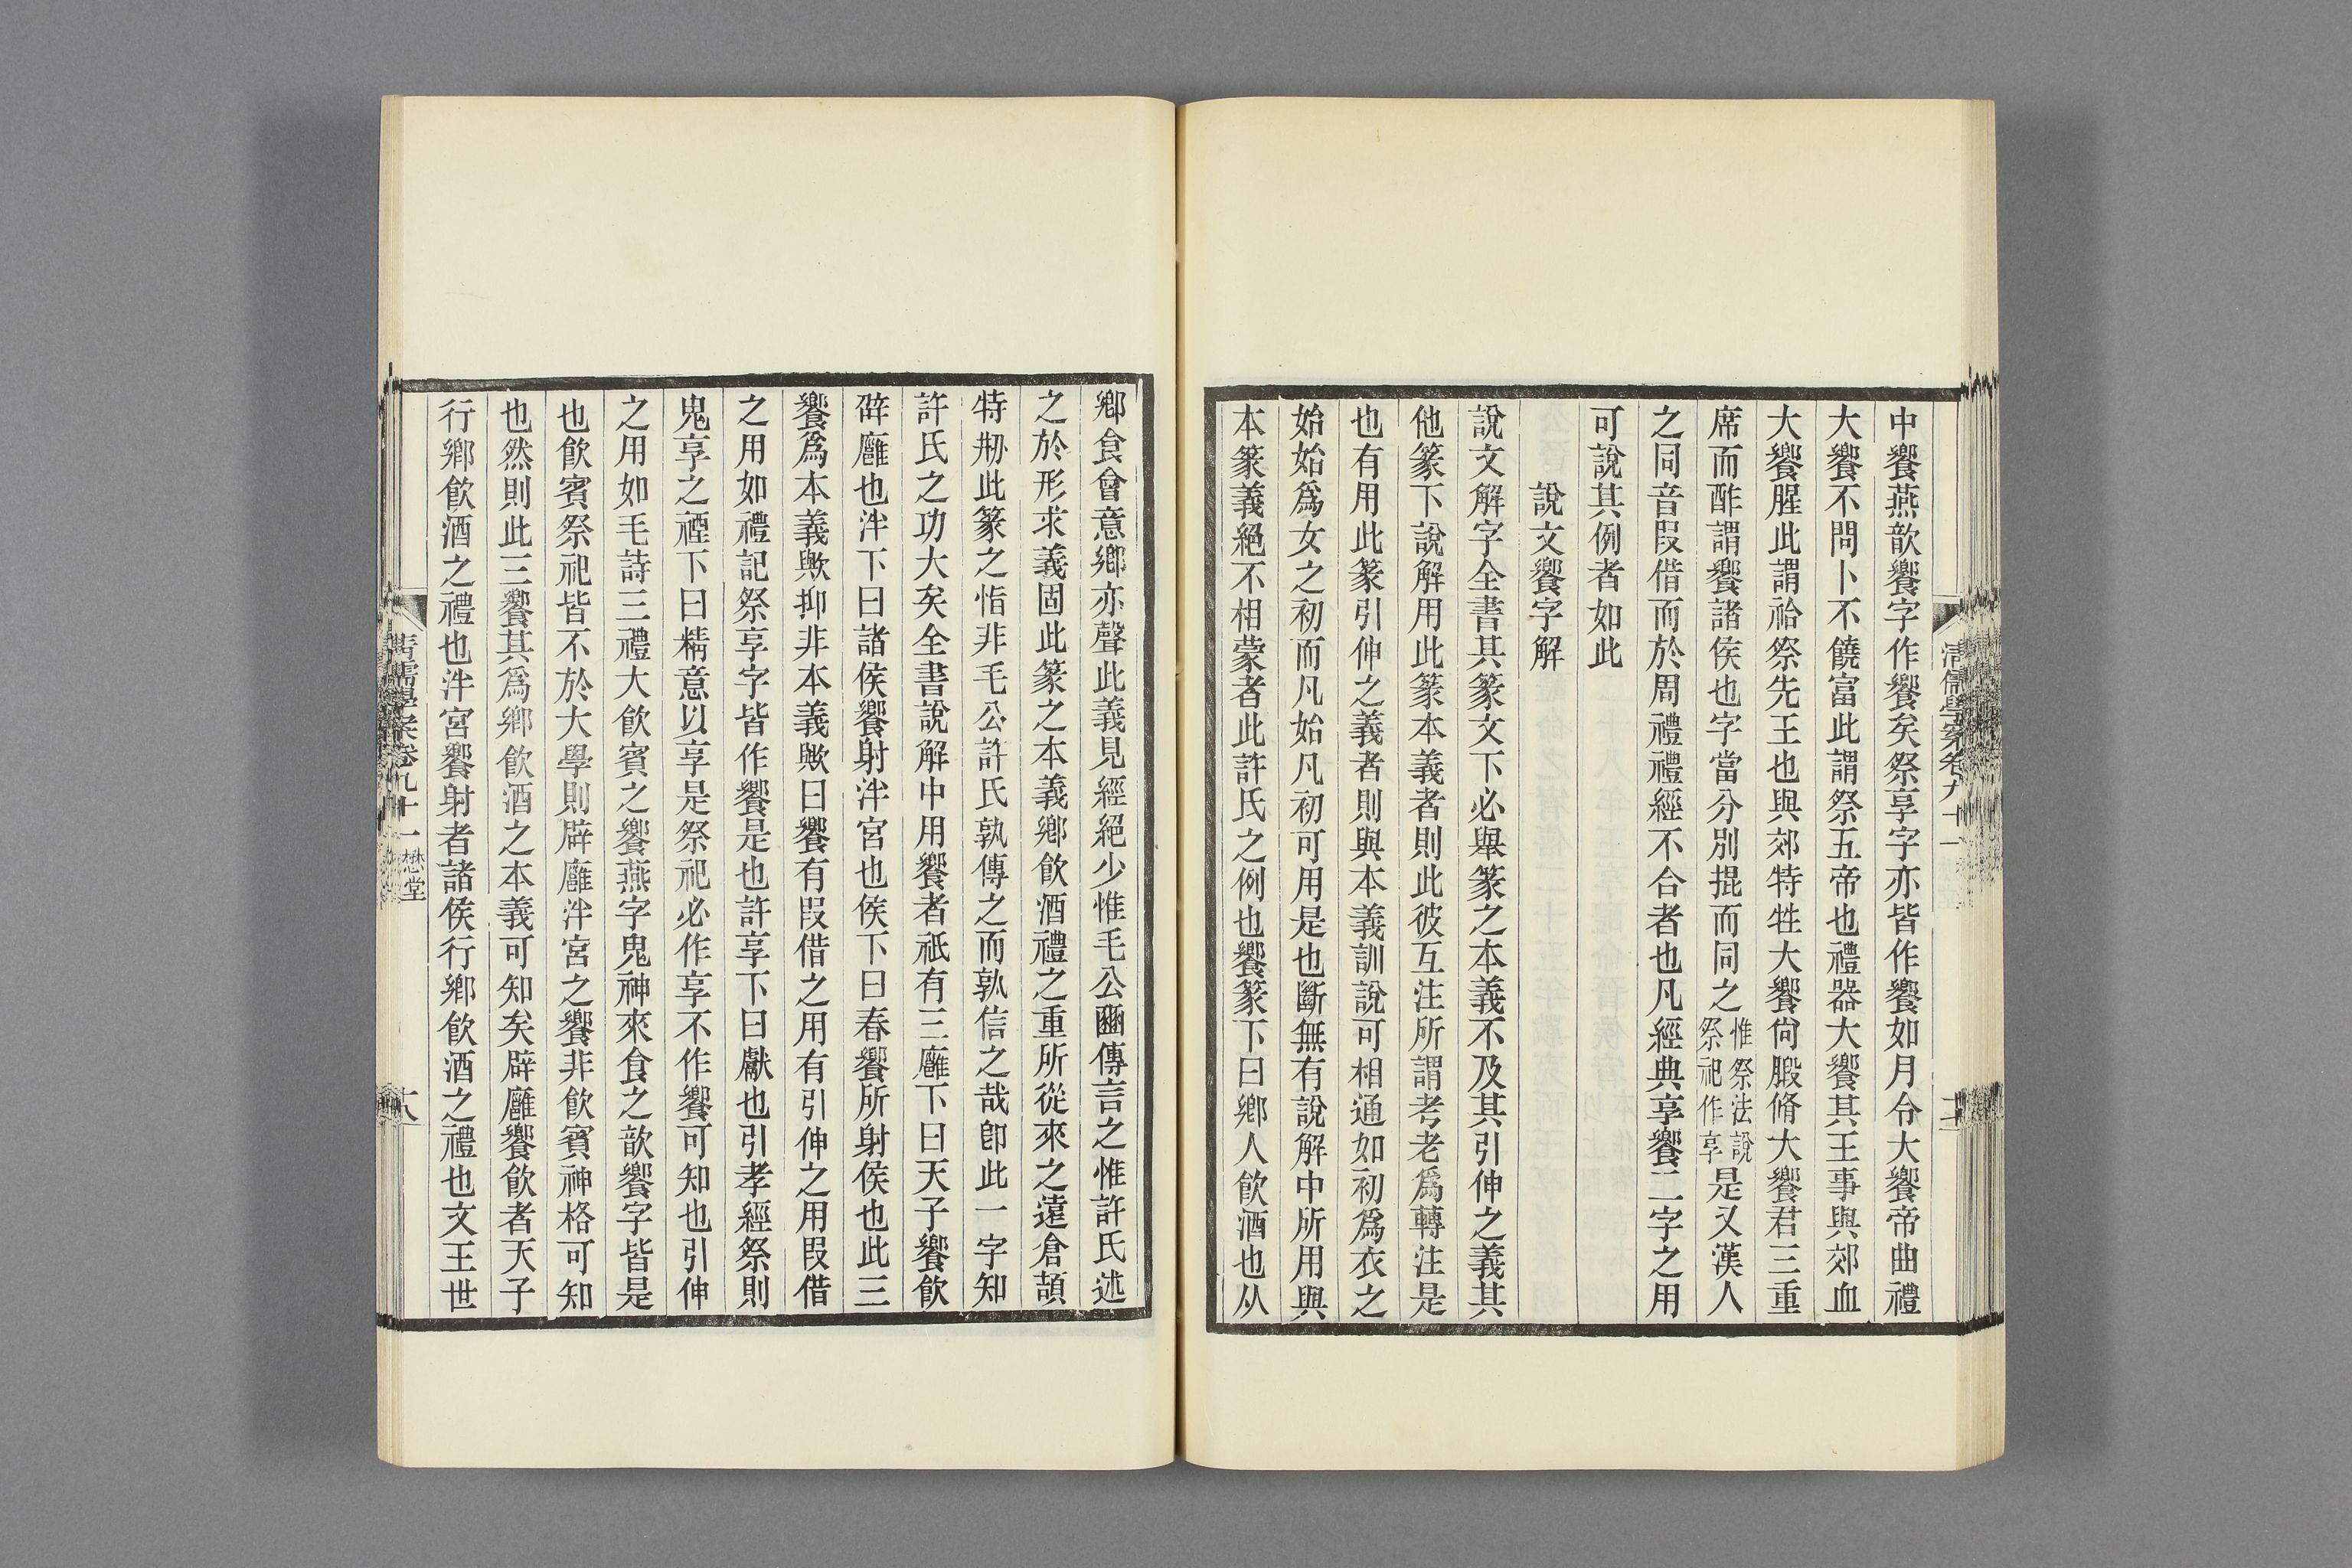 中饗燕歆饗字作饗矣祭享字亦皆作饗如月令大饗帝曲禮
大饗不問卜不饒富此謂祭五帝也禮器大饗其王事與郊血
大饗腥此謂祫祭先王也與郊特牲大饗尙腶脩大饗君三重
席而酢謂饗諸侯也字當分別掍而同之惟祭法說祭祀作享是又漢人
之同音叚借而於周禮禮經不合者也凡經典享饗二字之用
可說其例者如此
說文饗字解
說文解字全書其篆文下必舉篆之本義不及其引伸之義其
他篆下說解用此篆本義者則此彼互注所謂考老爲轉注是
也有用此篆引伸之義者則與本義訓說可相通如初爲衣之
始始爲女之初而凡始凡初可用是也斷無有說解中所用與
本篆義絕不相蒙者此許氏之例也饗篆下曰鄉人飮酒也从
清儒學案卷九十一
鄉食會意鄉亦聲此義見經絕少惟毛公豳傳言之惟許氏述
之於形求義固此篆之本義鄉飮酒禮之重所從來之遠倉頡
特剏此篆之恉非毛公許氏孰傳之而孰信之哉卽此一字知
許氏之功大矣全書說解中用饗者祇有三廱下曰天子饗飮
辟廱也泮下曰諸侯饗射泮宮也侯下曰春饗所射侯也此三
饗爲本義歟抑非本義歟曰饗有叚借之用有引伸之用叚借
之用如禮記祭享字皆作饗是也許享下曰獻也引孝經祭則
鬼享之禋下曰精意以享是祭祀必作享不作饗可知也引伸
之用如毛詩三禮大飮賓之饗燕字鬼神來食之歆饗字皆是
也飮賓祭祀皆不於大學則辟廱泮宮之饗非飮賓神格可知
也然則此三饗其爲鄉飮酒之本義可知矣辟廱饗飮者天子
行鄉飮酒之禮也泮宮饗射者諸侯行鄉飮酒之禮也文王世
清儒學案卷九十一 懋堂
十八